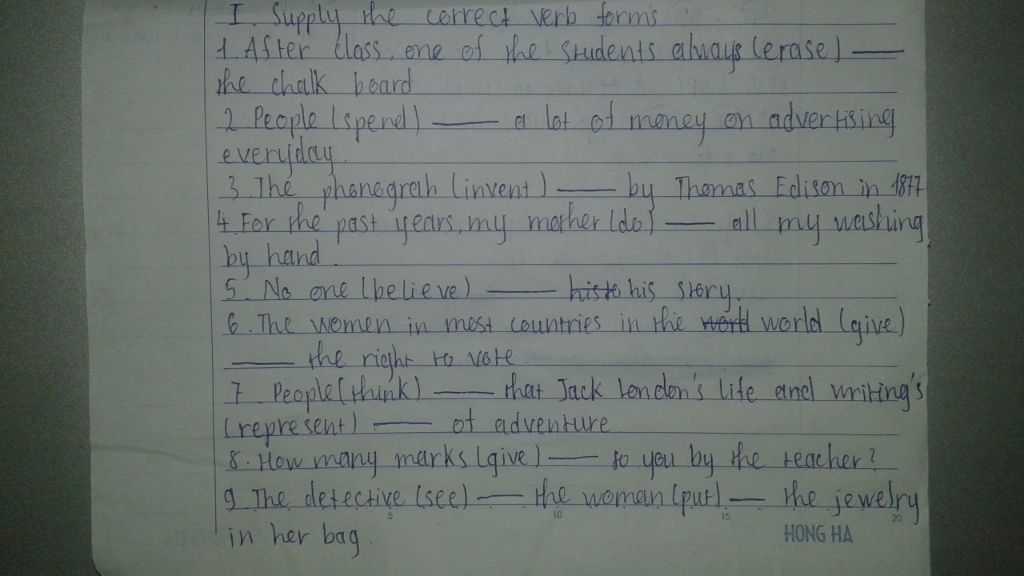 I. Supply the correct verb forms
1. After class, one of the students always (erase) ——
the chalk board
2. People (spend) —— a lot of money on advertising
everyday.
3. The phonograh (invent) —— by Thomas Edison in 1877
4. For the past years, my mother (do) —— all my washing
by hand.
5. No one (believe) —— his story.
6. The women in most countries in the world (give)
—— the right to vote
7. People (think) —— that Jack London's life and writing's
(represent) —— of adventure
8. How many marks (give) —— to you by the teacher?
9 The detective (see) —— the woman (put) —— the jewelry
in her bag.
5 10 15 20
HONG HA